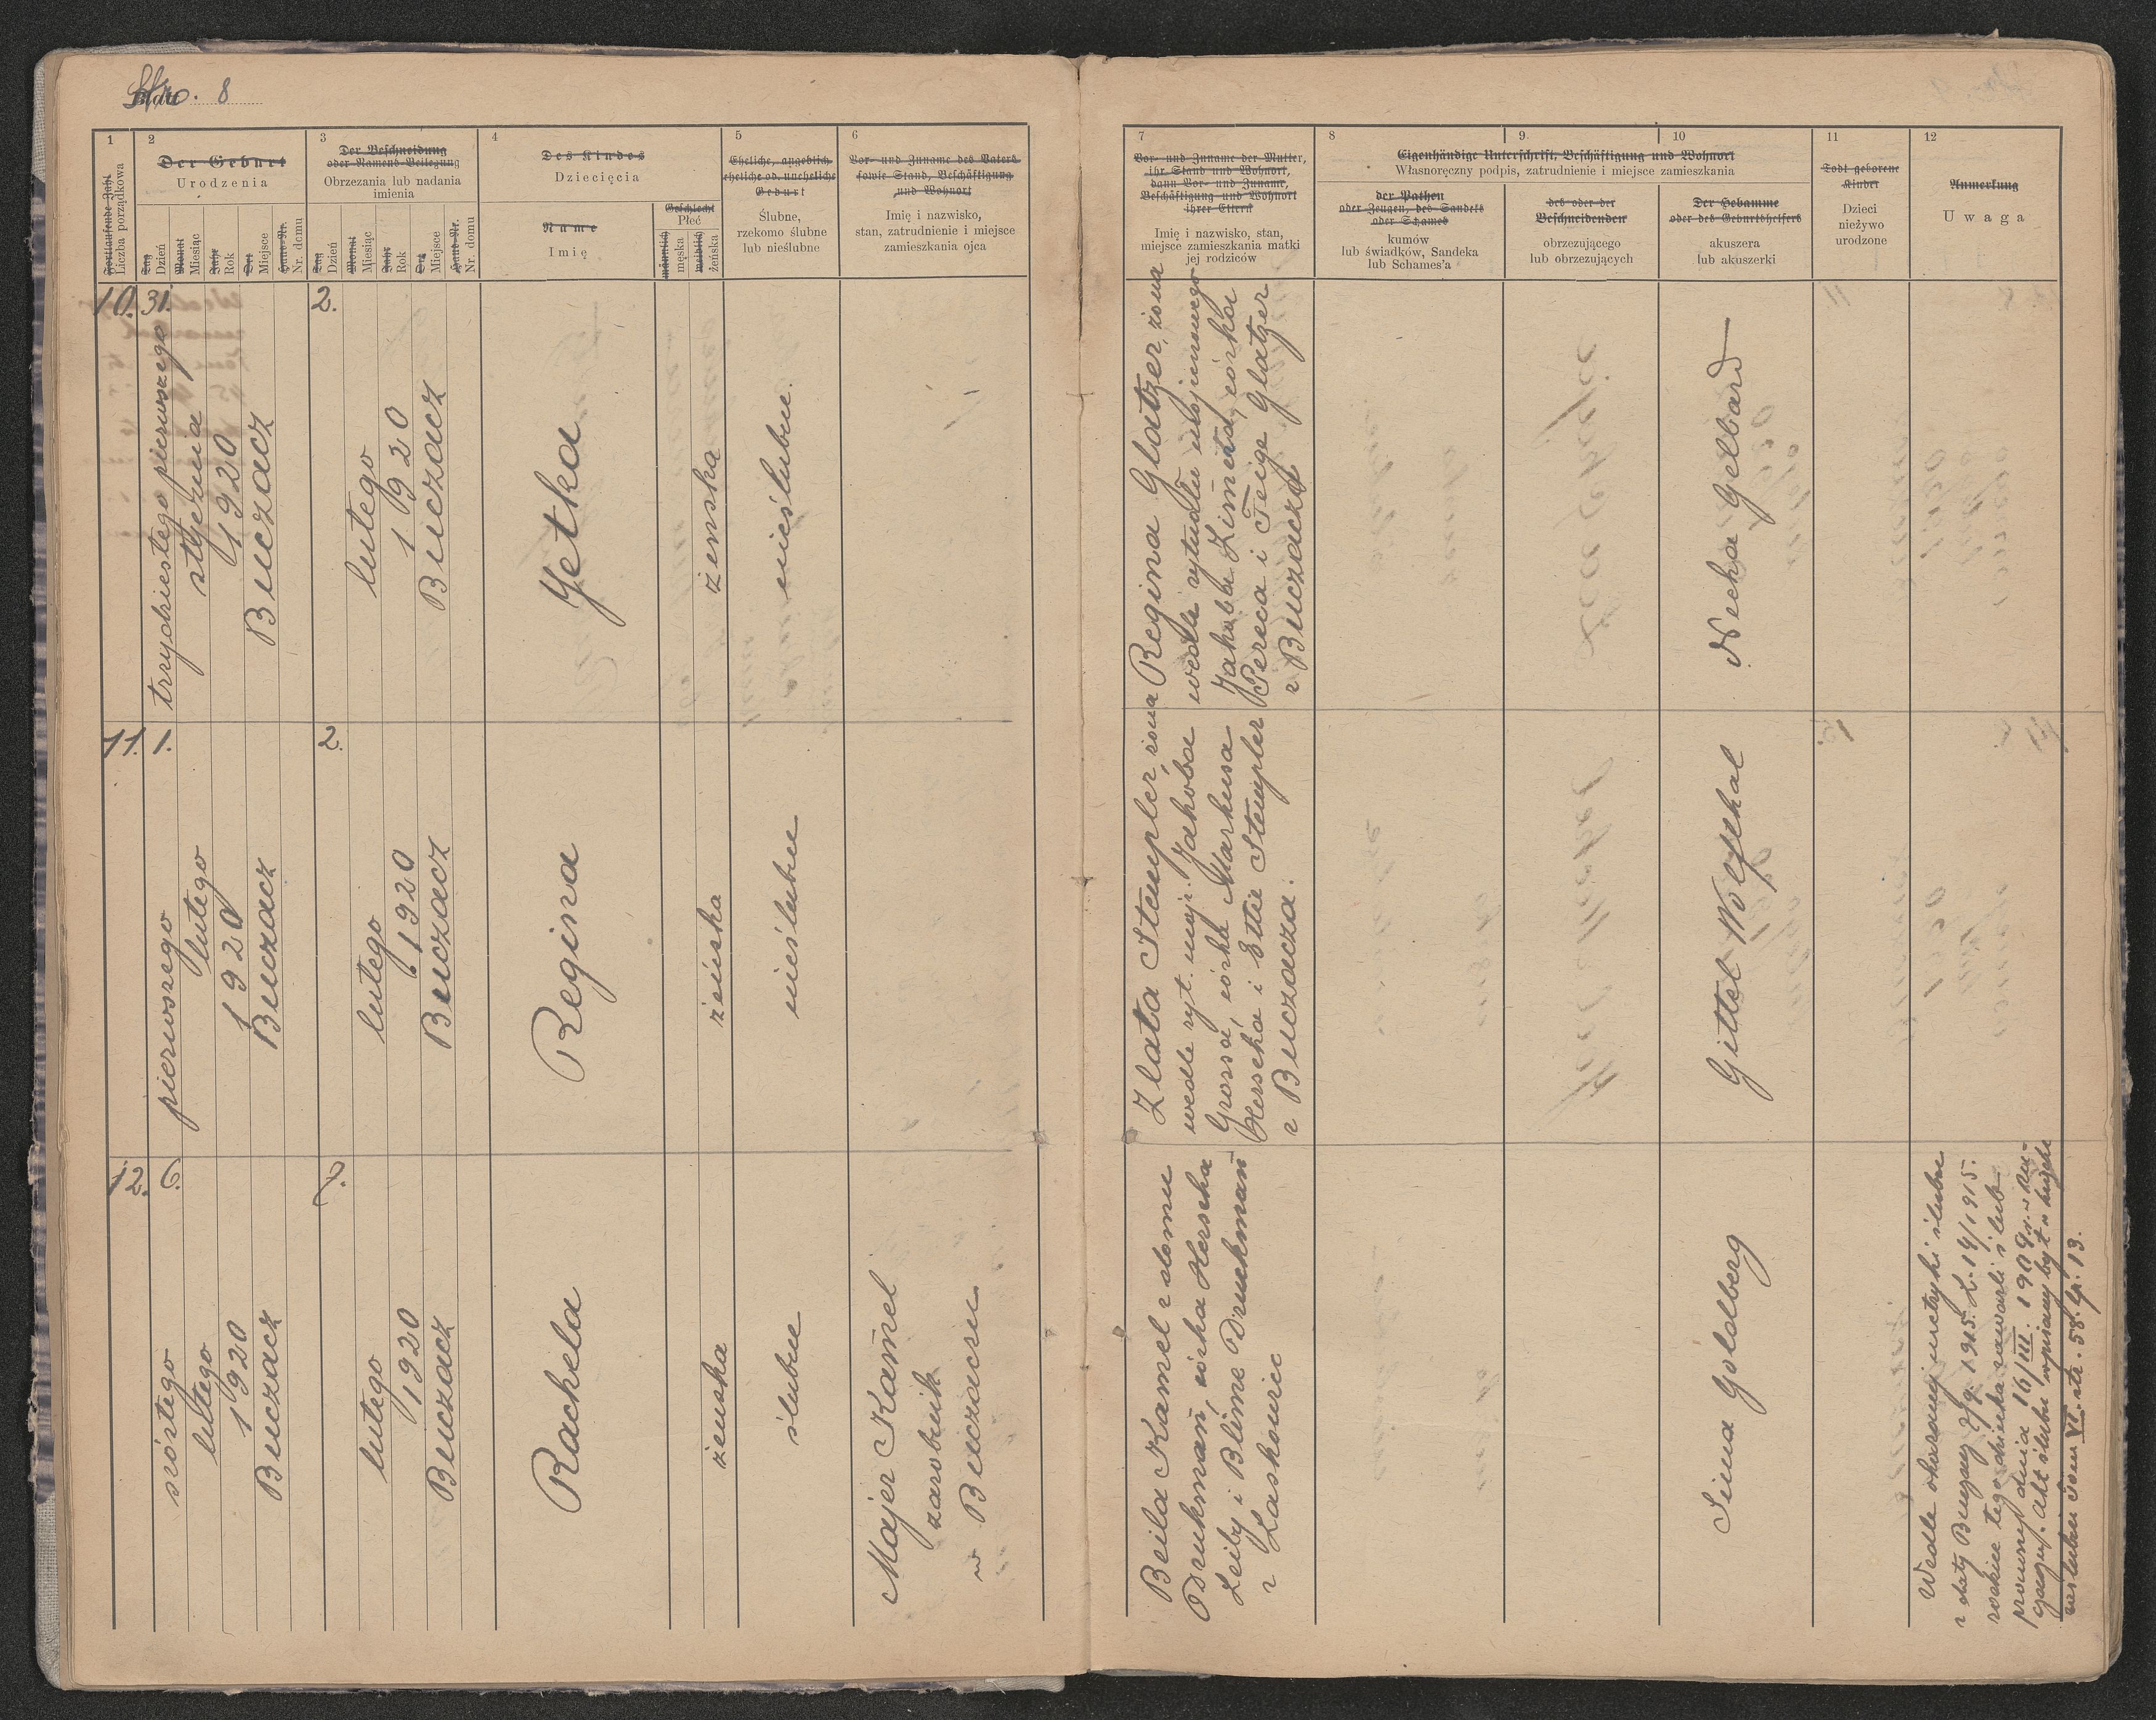 Stro. 8
1
Fortlaufende Zahl
Liczba porządkowa
2
Der Geburt
Urodzenia
Tag
Dzień
Monat
Miesiąc
Jahr
Rok
Ort
Miejsce
Haus-Nr.
Nr. domu
3
Der Beschneidung
oder Namens-Beilegung
Obrzezania lub nadania
imienia
Tag
Dzień
Monat
Miesiąc
Jahr
Rok
Ort
Miejsce
Haus-Nr.
Nr. domu
4
Des Kindes
Dziecięcia
Name
Imię
Geschlecht
Płeć
männlich
męska
weiblich
żeńska
5
Eheliche, angeblich
eheliche od. uneheliche
Geburt
Ślubne,
rzekomo ślubne
lub nieślubne
6
Vor- und Zuname des Vaters
sowie Stand, Beschäftigung
und Wohnort
Imię i nazwisko,
stan, zatrudnienie i miejsce
zamieszkania ojca
7
Vor- und Zuname der Mutter,
ihr Stand und Wohnort,
dann Vor- und Zuname,
Beschäftigung und Wohnort
ihrer Eltern
Imię i nazwisko, stan,
miejsce zamieszkania matki
jej rodziców
8
9
10
Eigenhändige Unterschrift, Beschäftigung und Wohnort
Własnoręczny podpis, zatrudnienie i miejsce zamieszkania
der Pathen
oder Zeugen, des Sandeks
oder Schames
kumów
lub świadków, Sandeka
lub Schames'a
des oder der
Beschneidenden
obrzezującego
lub obrzezujących
Der Hebamme
oder des Geburtshelfers
akuszera
lub akuszerki
11
Todt geborene
Kinder
Dzieci
nieżywo
urodzone
12
Anmerkung
Uwaga
10.
31.
trzydziestego pierwszego
stycznia
1920
Buczacz
2.
lutego
1920
Buczacz
Jetka
żenska
nieślubne.
Regina Glatzer, żona
wedle rytuału mojżeszowego
Jakóba Zimerta, córka
Pereca i Feige Glatzer
z Buczacza
Necha Gelbard
11.
1.
pierwszego
lutego
1920
Buczacz
2.
lutego
1920
Buczacz
Regina
żeńska
nieślubne
Zlata Stempler, żona
wedle ryt. mojż. Jakóba
Grossa, córka Markusa
Herscha i Etie Stempler
z Buczacza.
Gittel Wolfthal
12.
6.
szóstego
lutego
1920
Buczacz
7.
lutego
1920
Buczacz
Rachela
żenska
ślubne
Majer Kamel
zarobnik
w Buczaczu
Beila Kamel z domu
Druckman, córka Herscha
Leiby i Blime Druckman
z Laskowiec
Sima Goldberg
Wedle okazanej metryki ślubu
z daty Buczacz 1915. L. 14/1915.
rodzice tego dziecka zawarli ślub
dnia 16/III. 1909
akt ślubu wpisany był w księdze
zaślubin tom VI. str. 58. lp. 13.